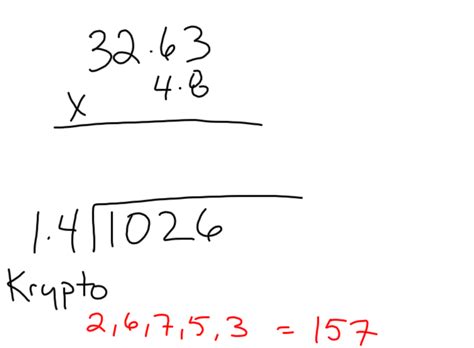 32.63
x 4.8
1.4)1026
Krypto
2,6,7,5,3 = 157